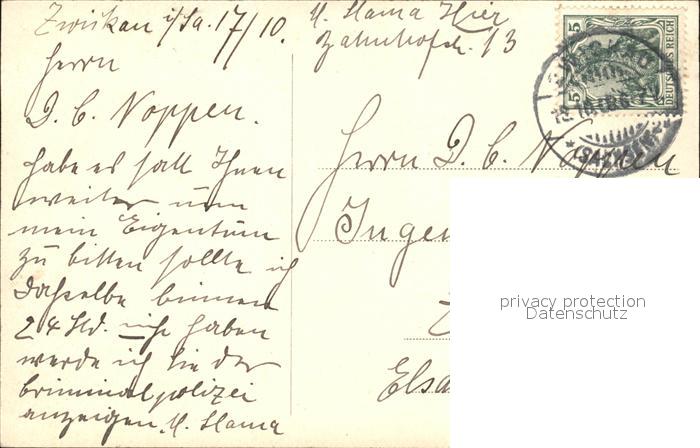 Zwickau i/Sa. 17/10.
Herrn
D. C. Noppen.
Habe es satt Ihnen
weiter um
mein Eigentum
zu bitten sollte ich
dasselbe binnen
24 Std. nicht haben
werde ich Sie der
Criminalpolizei
anzeigen. M. Slama
M. Slama Hier
Bahnhofstr. 13
5 DEUTSCHES REICH 5
(SACHSEN)
Herrn D. C. Noppen
Ingen
Elsa
privacy protection
Datenschutz